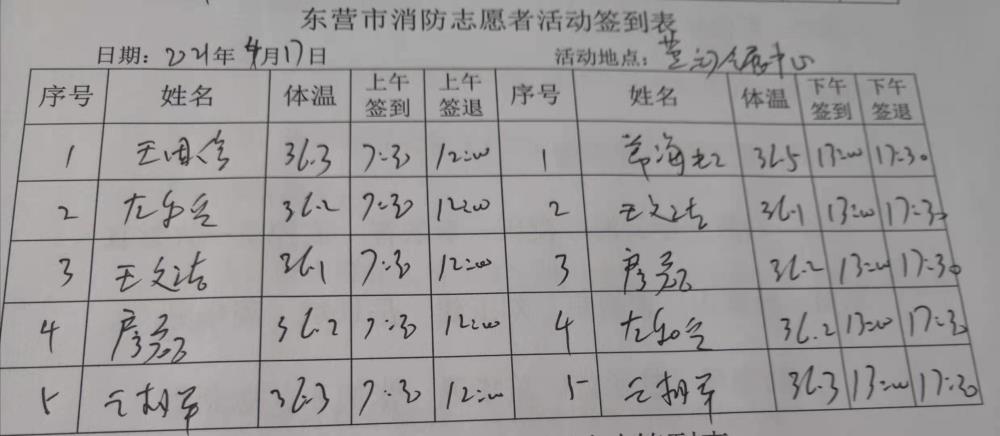 东营市消防志愿者活动签到表
日期：2021年4月17日 活动地点：会展中心
序号 姓名 体温 上午签到 上午签退 序号 姓名 体温 下午签到 下午签退
1 王国信 36.3 7:30 12:00 1 常海 36.5 13:00 17:30
2 左 36.2 7:30 12:00 2 王文法 36.1 13:00 17:30
3 王文法 36.1 7:30 12:00 3 36.2 13:00 17:30
4 36.2 7:30 12:00 4 左 36.2 13:00 17:30
5 军 36.3 7:30 12:00 5 军 36.3 13:00 17:30